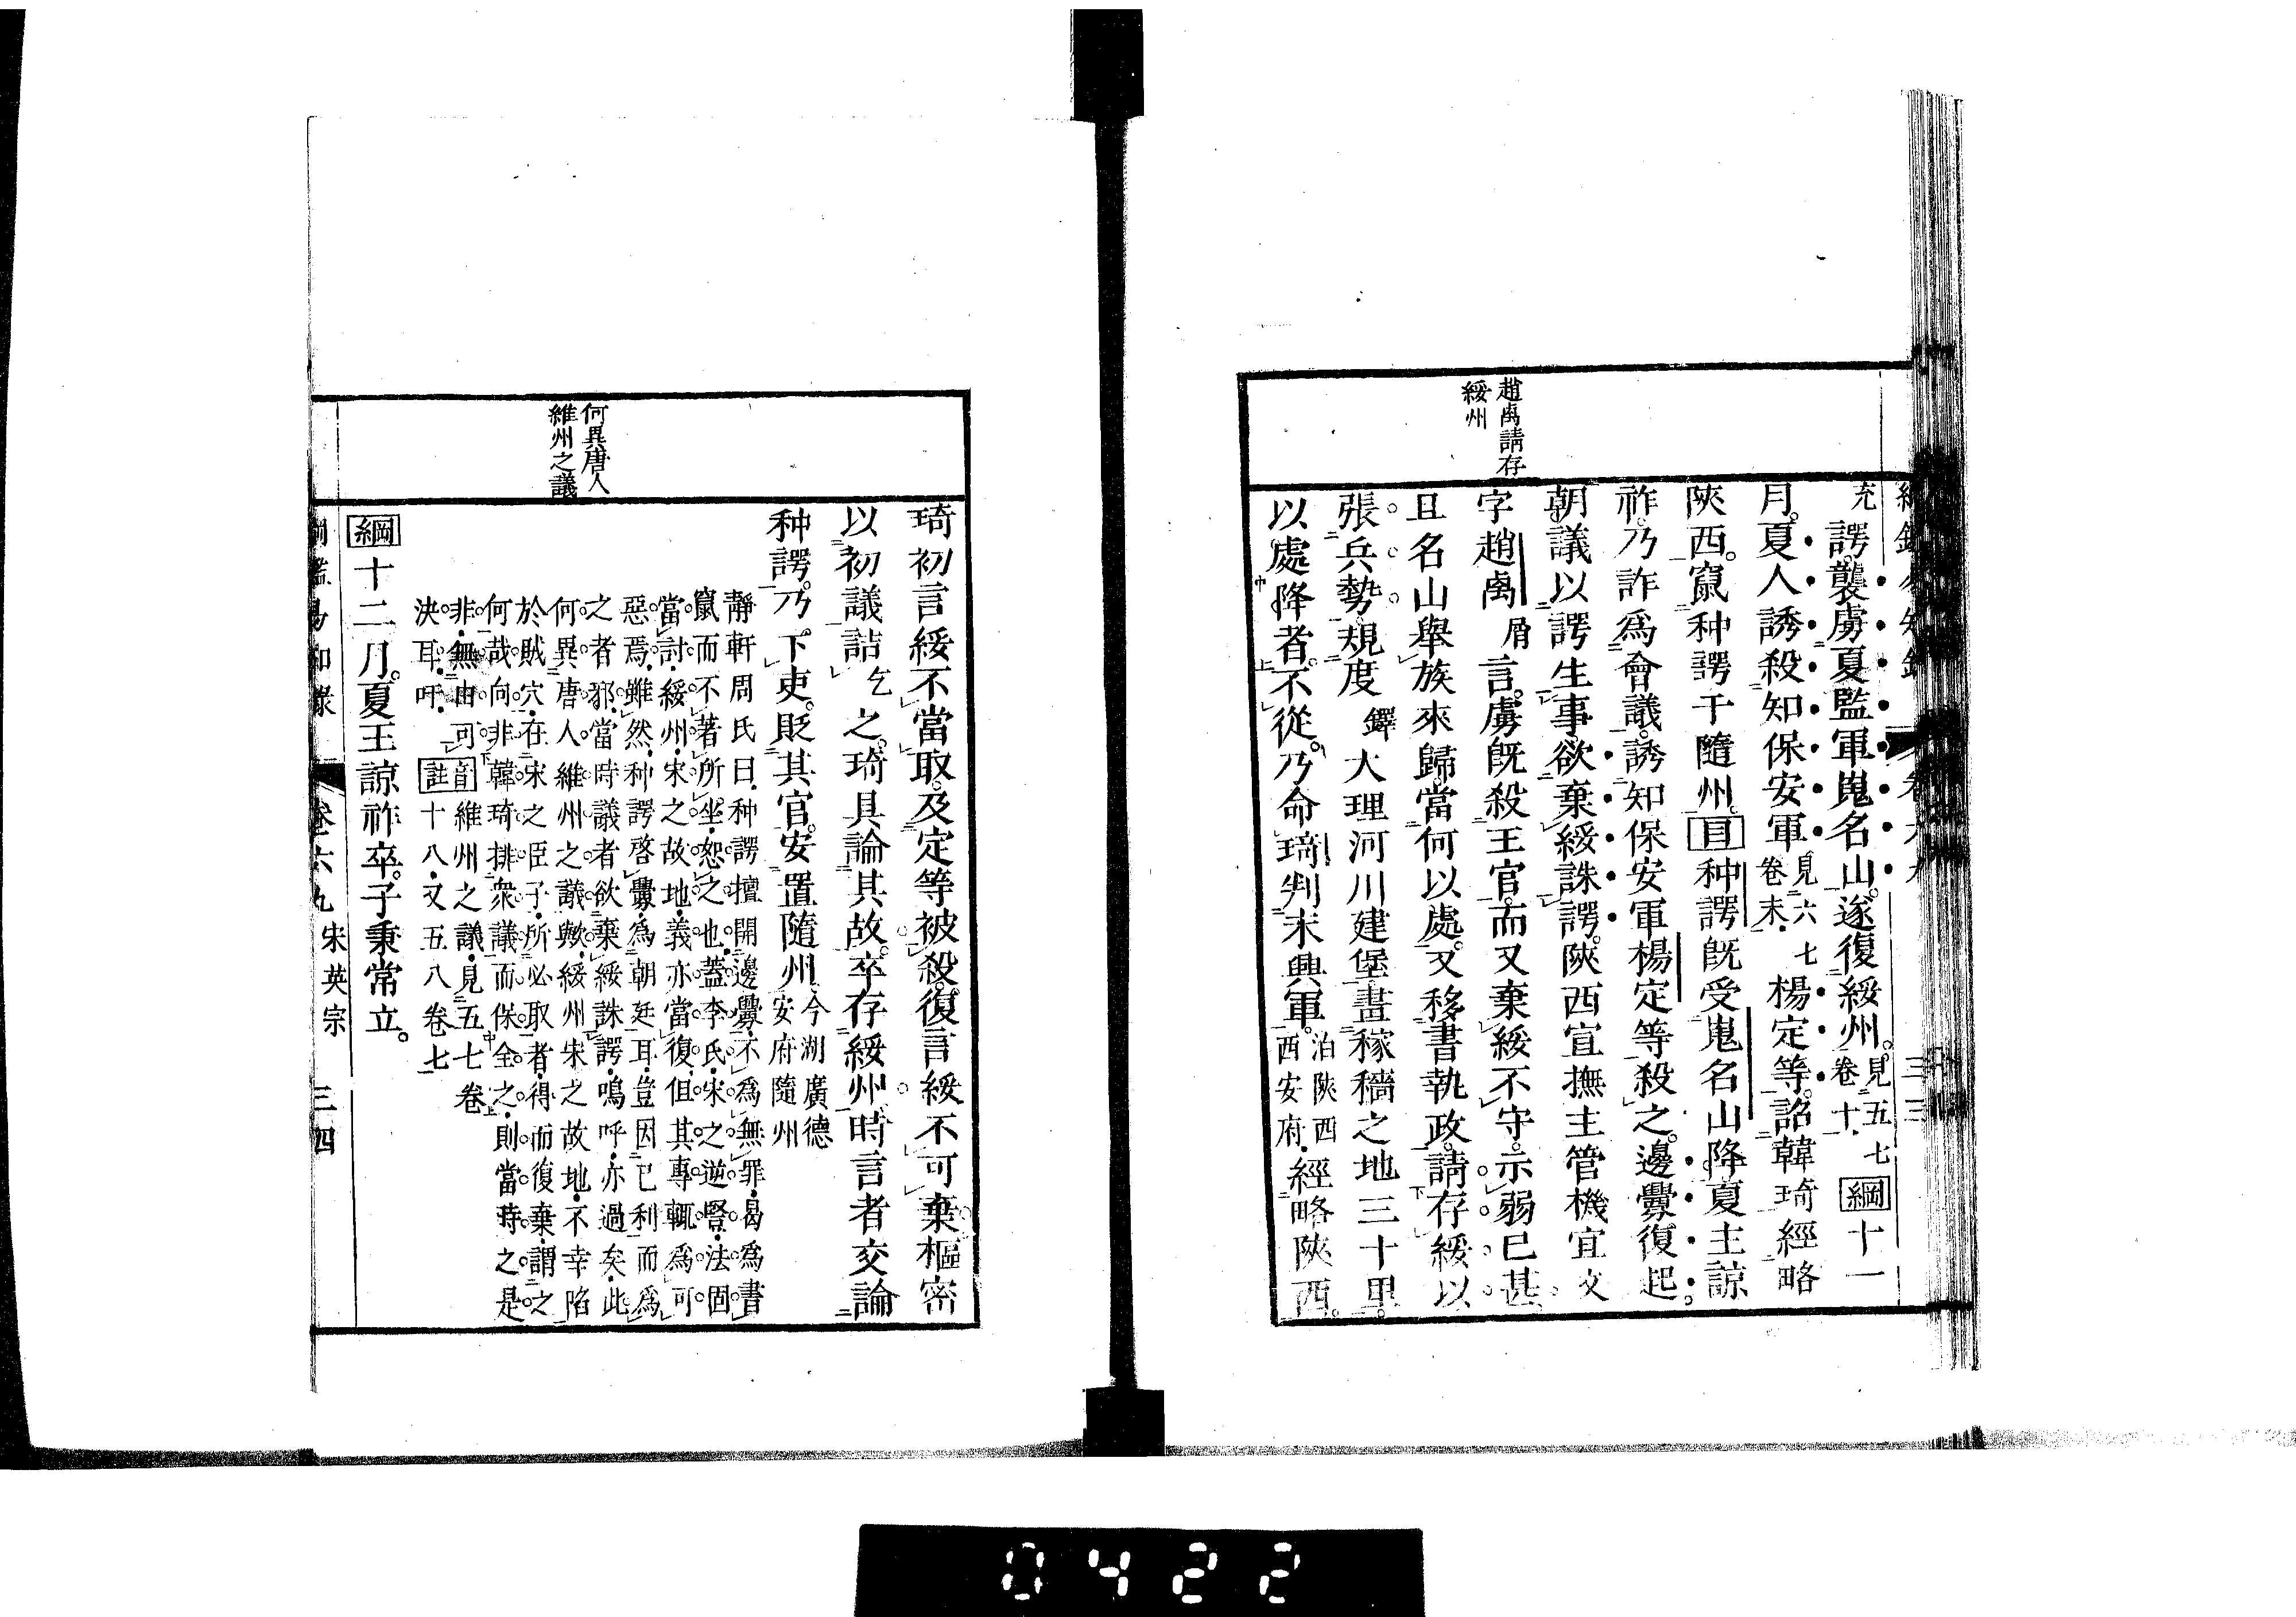 趙卨請存
綏州
充諤襲虜夏監軍嵬名山遂復綏州。見五七卷十綱十一
月。夏人誘殺知保安軍見六七卷末楊定等。詔韓琦經略
陝西。竄种諤于隨州。目种諤既受嵬名山降夏主諒
祚。乃詐爲會議。誘知保安軍楊定等殺之。邊釁復起。
朝議以諤生事。欲棄綏誅諤。陝西宣撫主管機宜文
字趙卨屑言。虜既殺王官。而又棄綏不守。示弱已甚。
且名山舉族來歸。當何以處。又移書執政。請存綏以
張兵勢。規度鐸大理河川建堡。畫稼穡之地三十里。
以處降者。不從。乃命琦判永興軍。治陝西西安府經略陝西。
何異唐人
維州之議
琦初言綏不當取。及定等被殺。復言綏不可棄。樞密
以初議詰乞之。琦具論其故。卒存綏州。時言者交論
种諤。乃下吏。貶其官。安置隨州。今湖廣德安府隨州
靜軒周氏曰。种諤擅開邊釁。不爲無罪。曷爲書
竄而不著所坐。恕之也。蓋李氏。宋之逆豎。法固
當討。綏州。宋之故地。義亦當復。但其專輒爲可
惡焉。雖然。种諤啓釁。爲朝廷耳。豈因己利而爲
之者邪。當時議者欲棄綏誅諤。嗚呼。亦過矣。此
何異唐人維州之議歟。綏州宋之故地。不幸陷
於賊穴。在宋之臣子。所必取者。得而復棄。謂之
何哉。向非韓琦排衆議而保全之。則當時之是
非。無由可
決耳。吁。音註維州之議。見五七卷
十八。又五八卷七
綱十二月。夏王諒祚卒。子秉常立。
綱鑑易知錄 卷六九 宋英宗 三四